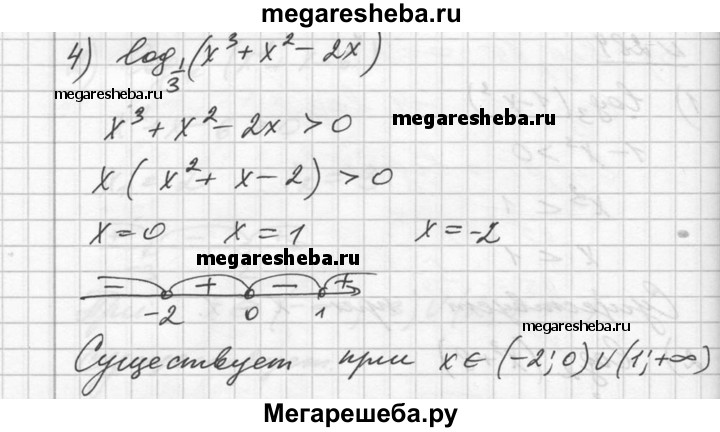 megaresheba.ru
4) log_{1/3}(x³ + x² - 2x)
megaresheba.ru
x³ + x² - 2x > 0 megaresheba.ru
x(x² + x - 2) > 0
x = 0 x = 1 x = -2
megaresheba.ru
- + - +
-2 0 1
megaresheba.ru
Существует при x ∈ (-2; 0) ∪ (1; +∞)
Мегарешеба.ру